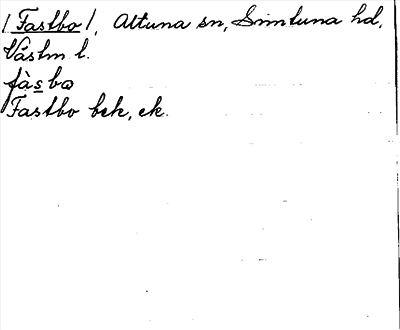 /Fastbo/, Altuna sn, Simtuna hd,
Västm l.
fàsbo
Fastbo bek, ek.